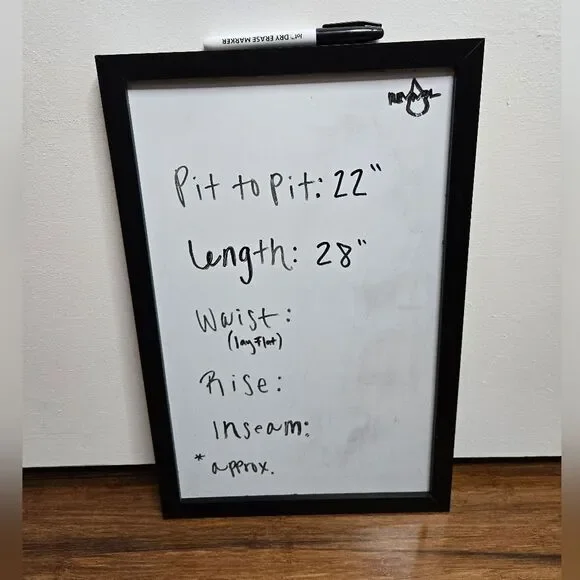 IoT™ DRY ERASE MARKER
Pit to pit: 22"
Length: 28"
Waist:
(lay flat)
Rise:
Inseam:
* approx.